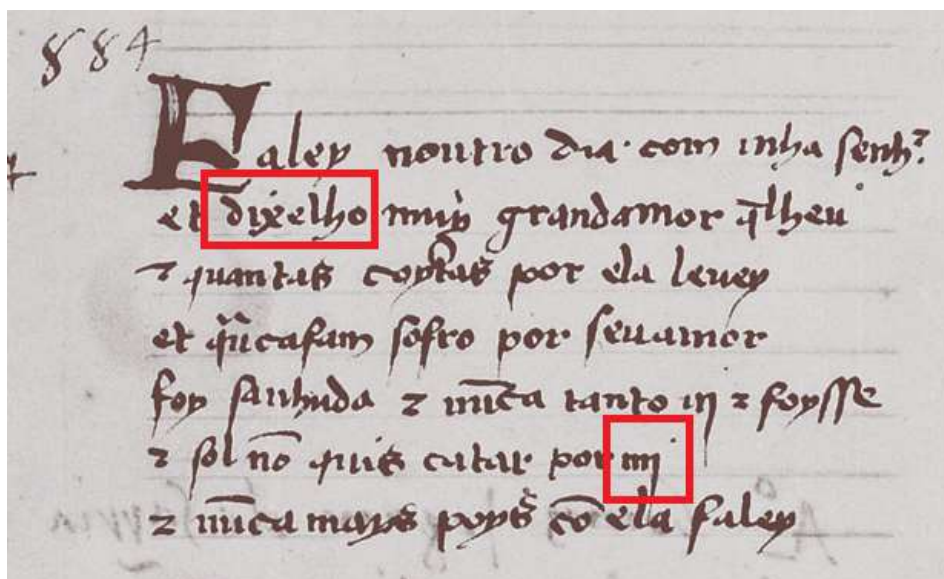 884
Faley noutro dia com mha senhʳ.
et dixelho muy grandamor q̄lheu
⁊ quantas coytas por ela levey
et q̄ncafam sofro por seuamor
foy sanhuda ⁊ nūca tanto uj ⁊ foysse
⁊ sol nō quis catar por mj
⁊ nūca mays poys cō ela faley